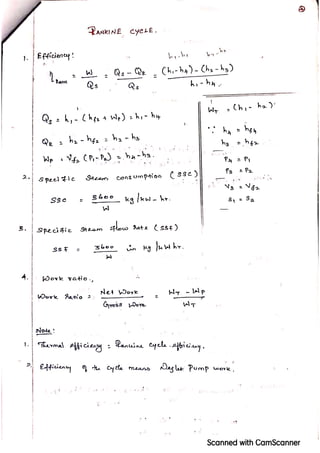 RANKINE CYCLE.
1. Efficiency :
η Rank = W / Qs = Qs - QR / Qs = (h1-h4) - (h2-h3) / h1-h4
WT = (h1 - h2)
Qs = h1 - (hf2 + Wp) = h1 - h4
∵ h4 = hf4
h3 = hf2
QR = h2 - hf2 = h2 - h3
Wp = Vf2 (P1-P2) = h4-h3.
P4 = P1
P3 = P2
2. Specific Steam consumption (SSC)
V3 = Vf2
S1 = S2
SSC = 3600 / W kg / kw - hr.
3. Specific Steam flow Rate (SSF)
SSF = 3600 / W in kg / kW hr.
4. Work ratio.,
Work Ratio = Net Work / Gross Work = WT - Wp / WT
Note :
1. Thermal efficiency = Rankine cycle efficiency.
2. Efficiency of the cycle means Neglect Pump work.
Scanned with CamScanner